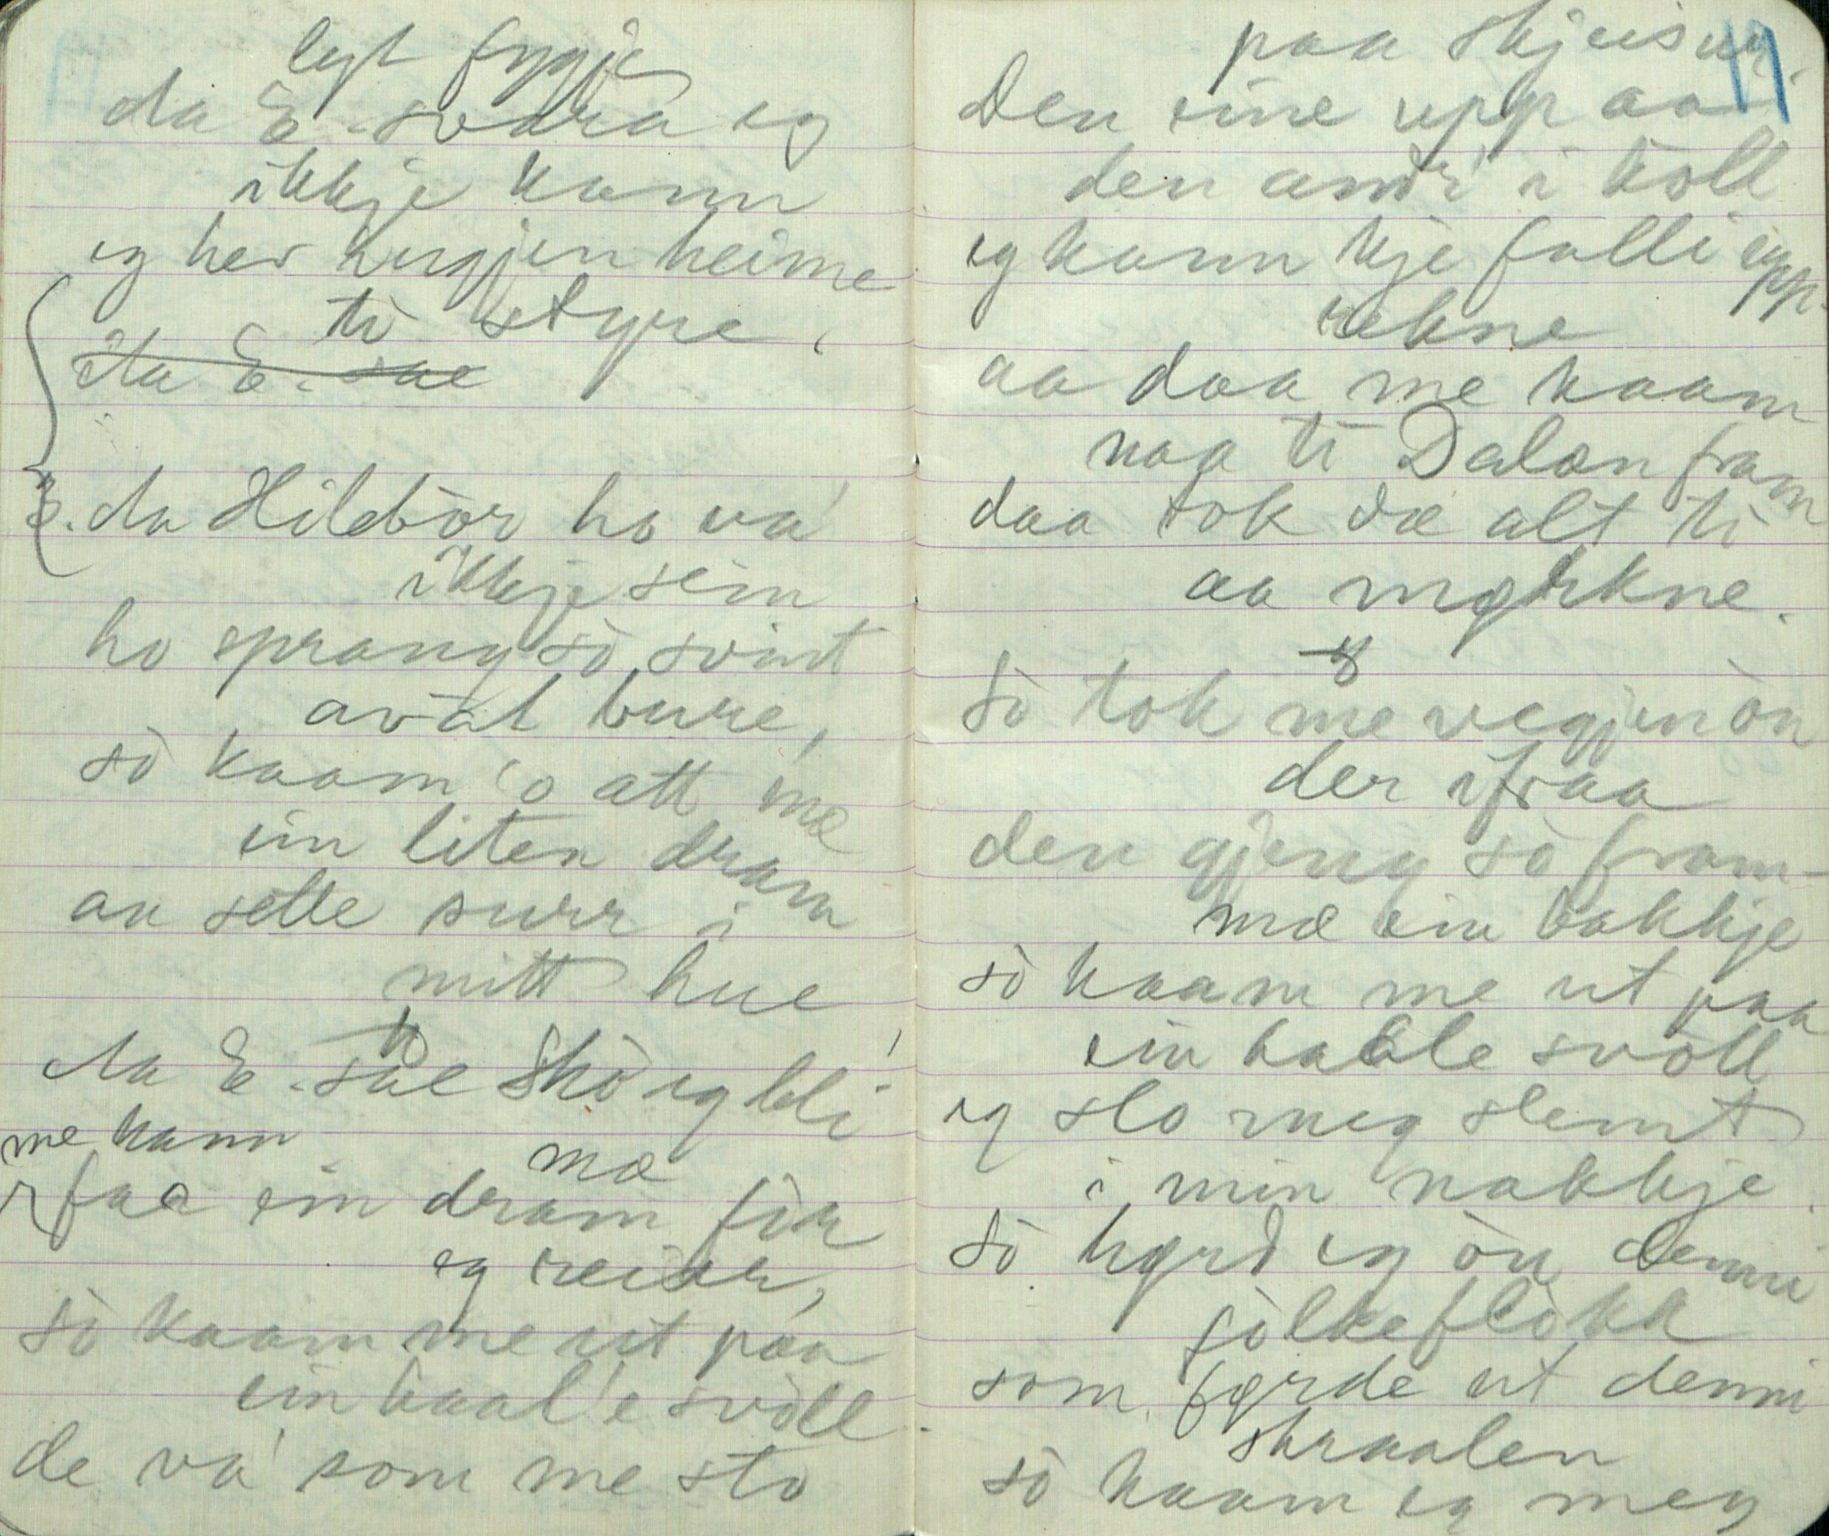 lyt fygje
da E. svara eg
ikkje kann
eg her hugjen heime
ti styre,
da E. sae
da Hilebòr ho va'
ikkje sein
ho sprang sò svint
avàt bure,
sò kaam 'o att mæ
ein liten dram
aa sette surr i
mitt hue
da E. sae Skò eg bli'
me kann mæ
faa ein dram fìr
eg reiser,
sò kaam me ut paa
ein haal'e svòll
de va' som me sto
17
paa skjeisur.
Den eine upp aa
den andri i koll
eg kann kje falli upp-
rekne
aa daa me kaam
naa ti Dalen fram
daa tok dæ alt ti
aa mørkne.
Sò tok me vegjen òn
der ifraa
den gjeng sò fram-
mæ ein bakkje
sò kaam me ut paa
ein haale svòll
eg slo meg slemt
i min nakkje.
Sò høyrd eg òn denni
fòlkeflòkk
som førde ut denni
skraalen
sò kaam eg meg